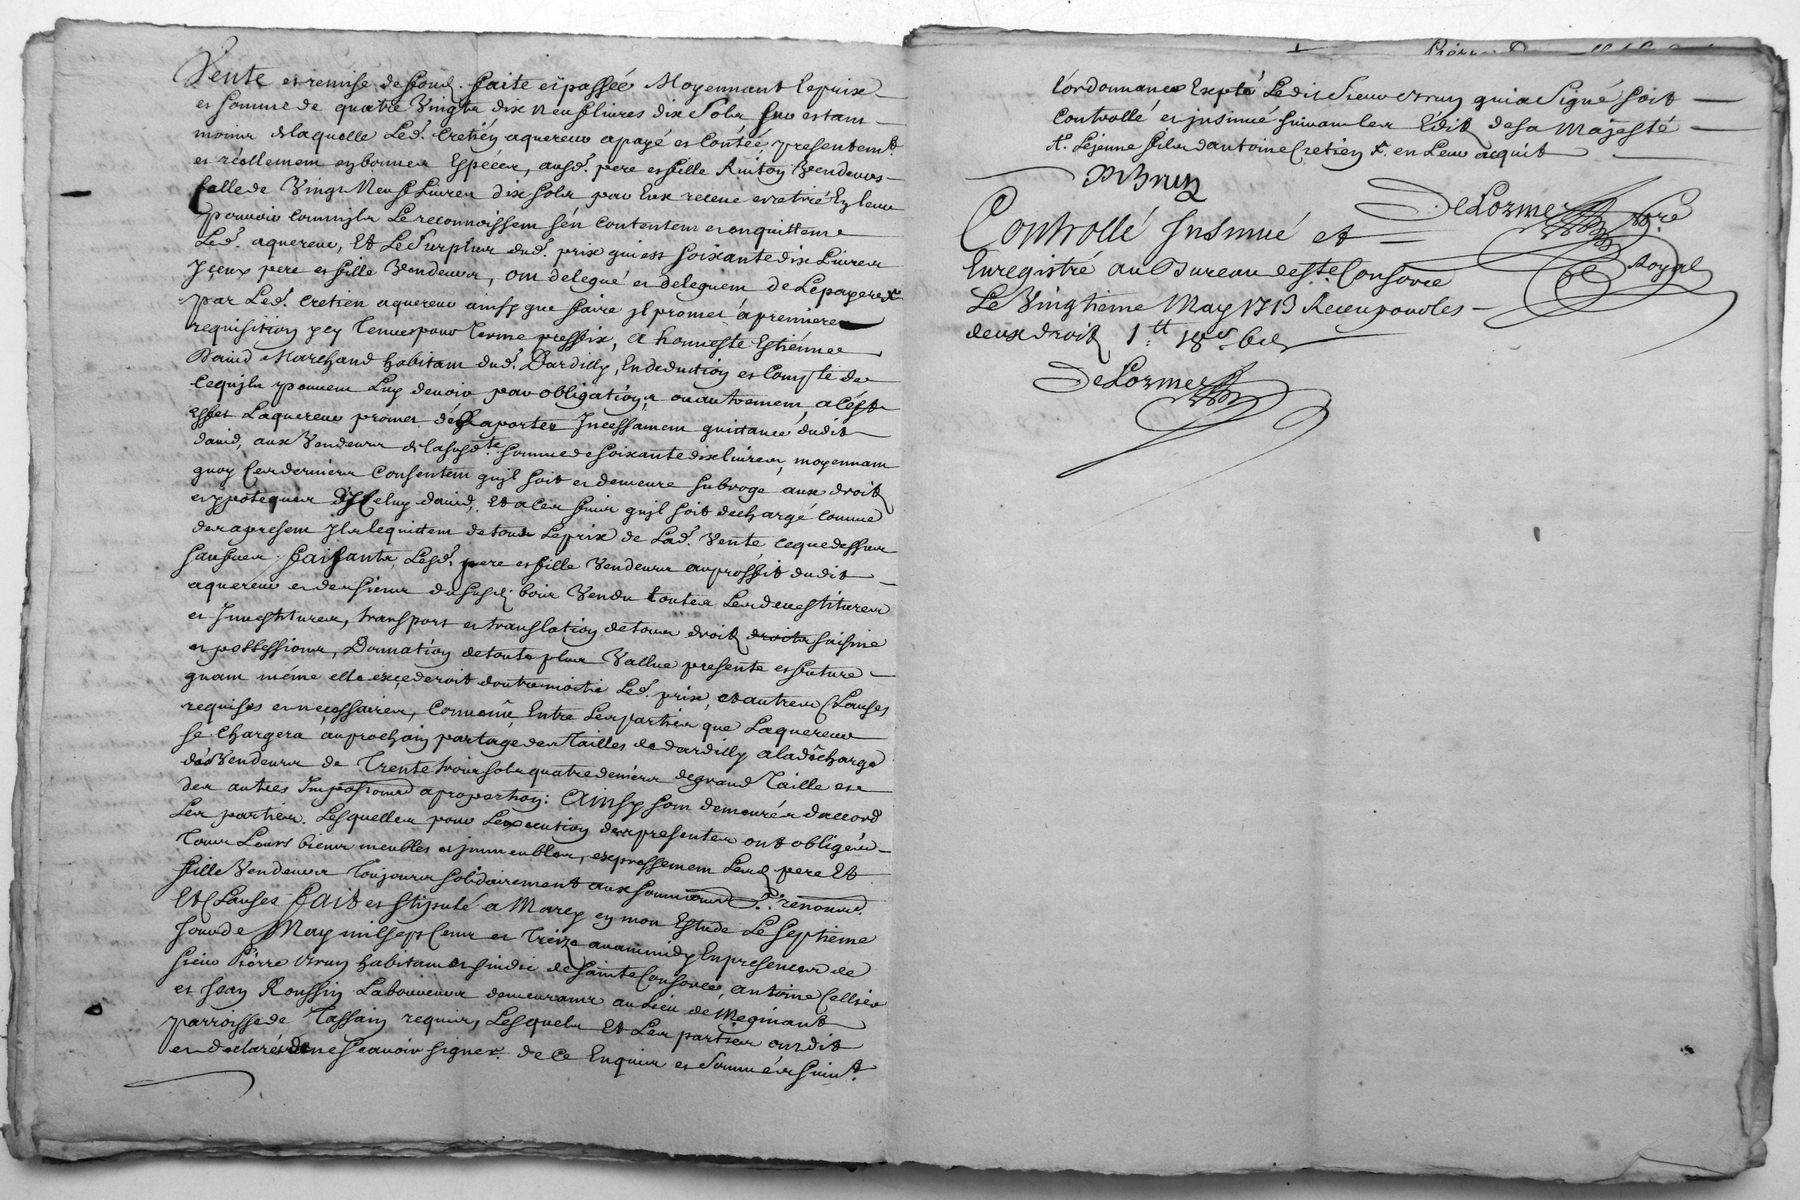 Vente et remise de fond. faite et passée Moyennant le prix
et somme de quatre Vingts dix neuf livres dix Sols sur et tant
moins de laquelle Led. Cretien aquereur a payé et Contée presentemt.
et réellement en bonnes Espéces, ausd. pere et fille Vendeurs
Celle de Vingt Neuf Livres dix sols par Eux receue et retirée En leur
pouvoir comm'ils Le reconnoissent s'en contentent et en quittent
Led. aquereur, Et Le Surplus dud. prix qui est soixante dix Livres
Jceux pere et fille Vendeurs, ont delegué et deleguent de Le payer
par Led. Cretien aquereur ainsy que faire jl promet à premiere
requisition y ey Tenue pour Terme preffix, a honneste Estienne
David Marchand habitant dud. Dardilly, En deduction et Compte de
ce qu'jls peuvent Luy devoir par obligation, ou autrement, a Cést
effet Laquereur promet d'en aporter Jncessament quittance dudit
David, aux Vendeurs de la susdte. somme de soixante dix livres, moyennant
quoy Ces derniers Consentent qu'jl soit et demeure subrogé aux droits
et ypoteques d'Jceluy david, Et a Ces fins qu'jl soit dechargé Comme
des apresent Jls le quittent de tout Le prix de Lad. Vente ce que dessus
sauf. faisants, Lesd. pere et fille Vendeurs au proffit dudit
aquereur et des siens du susd. bois Vendu toutes Les devestitures
et Jnvestitures, transport et translation de tous droits droits saisine
et possessions, Donnation de toute plus Vallue presente et future
quant même elle excederoit d'outre moitié Led. prix, et autres Clauses
requises et necessaires, Convenu Entre Les parties que Laquereur
se Chargera au prochain partage des Tailles de dardilly a la décharge
dés Vendeurs de Trente trois sols quatre deniers de grand Taille et
des autres Impositions a proportion: Ainsy sont demeurés d'accord
Les parties. Lesquelles pour L'execution des presentes ont obligés
Tous Leurs biens meubles et jmmeubles, expressement Lesd. pere Et
fille Vendeurs Toujours solidairement aux soumissions Pr. renonces.
Et Clauses fait et stipulé a Marcy en mon Estude Le Septieme
Jour de May mil sept Cent et Treize avant midy En presence de
sieur Piérre Brun habitant et sindic de Sainte Consorce, Antoine Cellier
et Jean Roussin Laboureurs demeurants au Lieu de Meginant
parroisse de Tassain requis, Lesquels Et Les parties ont dit
et declarés de ne scavoir signer. de ce Enquis et Sommés suivt.
L'ordonnance Excpté Ledit sieur Brun qui a Signé soit
Controllé et jnsinué suivant les Edits de sa Majesté
Le jeune fils d'antoine Cretien en Leur acquit
P Brun
DeLorme Nore Royal
Controllé Jnsinué et
Enregistré au Bureau de ste. Consorce
Le Vingtieme May 1713 Receu pour les
deux droits 1tt. 18s. 6d.
DeLorme